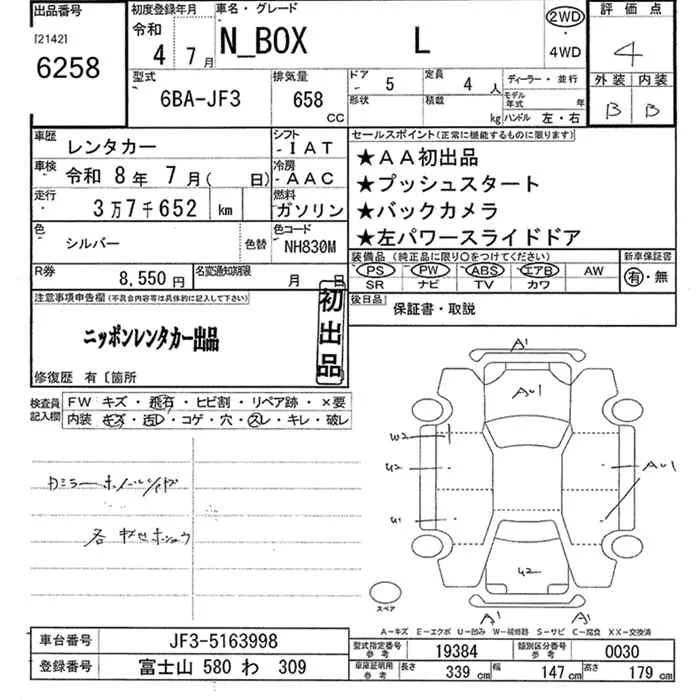 出品番号 初度登録年月 車名・グレード 評価点
[2142] 令和 4年 7月 N_BOX L 2WD ・ 4WD 4
6258
型式 排気量 ドア 5 定員 4人 ディーラー・並行 外装 内装
6BA-JF3 658 CC 形状 積載 kg モデル年式 年 B B
ハンドル 左・右
車歴 レンタカー シフト -IAT セールスポイント(正常に機能するものに限ります)
車検 令和 8年 7月( 日) 冷房 -AAC ★AA初出品
走行 3万7千652 km 燃料 ガソリン ★プッシュスタート
★バックカメラ
色 シルバー 色替 色コード NH830M ★左パワースライドドア
R券 8,550円 名変通知期限 月 日 装備品(純正品に限り〇をつけてください) 新車保証書
PS PW ABS エアB AW 有・無
SR ナビ TV カワ
注意事項申告欄(不具合内容等は具体的に記入して下さい) 初出品 後日品 保証書・取説
ニッポンレンタカー出品
修復歴 有〔箇所
検査員記入欄 FW キズ・飛石・ヒビ割・リペア跡・×要
内装 キズ・汚レ・コゲ・穴・スレ・キレ・破レ
A1
AU1
W2
U2 AU1
U1
U2
スペア A1 A1
A-キズ E-エクボ U-凹み W-補修跡 S-サビ C-腐食 XX-交換済
車台番号 JF3-5163998 型式指定番号 参考 19384 類別区分番号 参考 0030
登録番号 富士山 580 わ 309 車庫証明用 参考 長さ 339 cm 幅 147 cm 高さ 179 cm